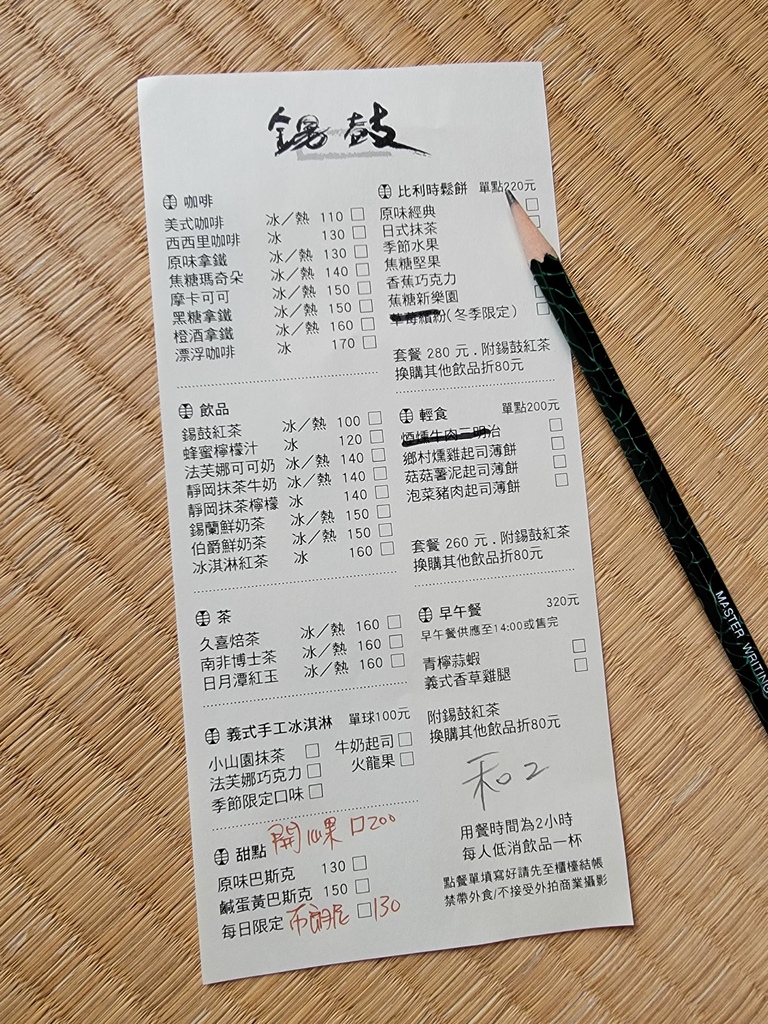 錫鼓
咖啡
美式咖啡 冰／熱 110
西西里咖啡 冰 130
原味拿鐵 冰／熱 130
焦糖瑪奇朵 冰／熱 140
摩卡可可 冰／熱 150
黑糖拿鐵 冰／熱 150
橙酒拿鐵 冰／熱 160
漂浮咖啡 冰 170
飲品
錫鼓紅茶 冰／熱 100
蜂蜜檸檬汁 冰 120
法芙娜可可奶 冰／熱 140
靜岡抹茶牛奶 冰／熱 140
靜岡抹茶檸檬 冰 140
錫蘭鮮奶茶 冰／熱 150
伯爵鮮奶茶 冰／熱 150
冰淇淋紅茶 冰 160
茶
久喜焙茶 冰／熱 160
南非博士茶 冰／熱 160
日月潭紅玉 冰／熱 160
義式手工冰淇淋 單球100元
小山園抹茶 牛奶起司
法芙娜巧克力 火龍果
季節限定口味
開心果 口200
甜點
原味巴斯克 130
鹹蛋黃巴斯克 150
每日限定 布朗尼 130
比利時鬆餅 單點220元
原味經典
日式抹茶
季節水果
焦糖堅果
香蕉巧克力
蕉糖新樂園
草莓繽紛(冬季限定)
套餐 280 元．附錫鼓紅茶
換購其他飲品折80元
輕食 單點200元
煙燻牛肉三明治
鄉村燻雞起司薄餅
菇菇薯泥起司薄餅
泡菜豬肉起司薄餅
套餐 260 元．附錫鼓紅茶
換購其他飲品折80元
早午餐 320元
早午餐供應至14:00或售完
青檸蒜蝦
義式香草雞腿
附錫鼓紅茶
換購其他飲品折80元
和2
用餐時間為2小時
每人低消飲品一杯
點餐單填寫好請先至櫃檯結帳
禁帶外食/不接受外拍商業攝影
MASTER WRITING